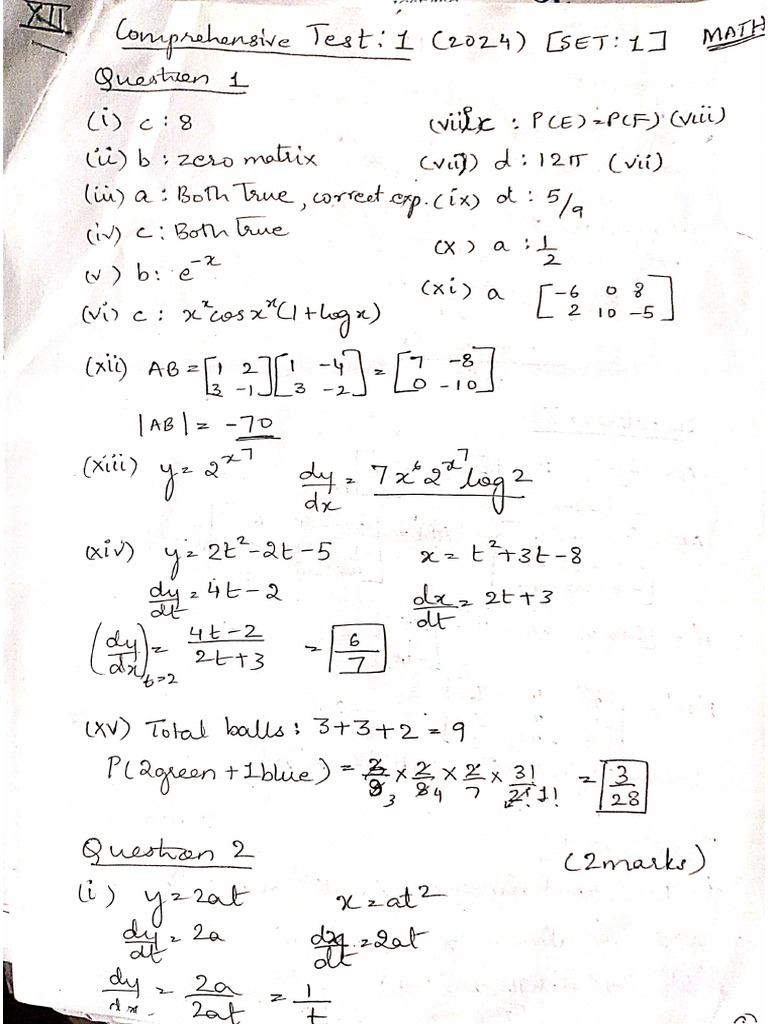 XII
Comprehensive Test: 1 (2024) [SET: 1] MATH
Question 1
(i) c : 8
(ii) b : zero matrix
(iii) a : Both True, correct exp.
(iv) c : Both True
(v) b : e^-x
(vi) c : x^x cos x^x (1 + log x)
c : P(E) = P(F) (viii)
(vii) d : 12π (vii)
(ix) d : 5/9
(x) a : 1/2
(xi) a [-6 0 8
2 10 -5]
(xii) AB = [1 2; 3 -1] [1 -4; 3 -2] = [7 -8; 0 -10]
|AB| = -70
(xiii) y = 2^x^7 dy/dx = 7x^6 2^x^7 log 2
(xiv) y = 2t² - 2t - 5 x = t² + 3t - 8
dy/dt = 4t - 2 dx/dt = 2t + 3
(dy/dx)t=2 = 4t - 2 / 2t + 3 = 6/7
(xv) Total balls : 3 + 3 + 2 = 9
P(2green + 1blue) = 3/9 × 2/8 × 2/7 × 3!/2!1! = 3/28
Question 2 (2marks)
(i) y = 2at x = at²
dy/dt = 2a dx/dt = 2at
dy/dx = 2a/2at = 1/t